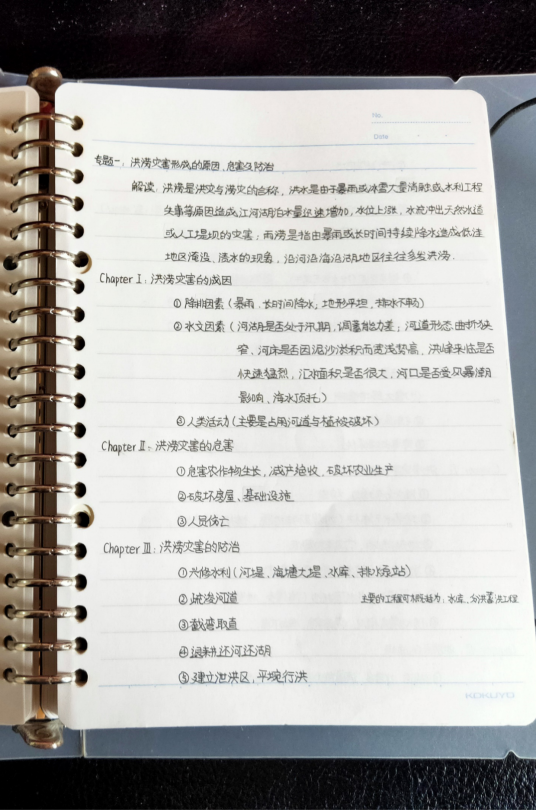 No.
Date
专题一、洪涝灾害形成的原因、危害及防治
解读：洪涝是洪灾与涝灾的合称，洪水是由于暴雨或冰雪大量消融或水利工程
失事等原因造成江河湖泊水量迅速增加，水位上涨，水流冲出天然水道
或人工堤坝的灾害；而涝是指由暴雨或长时间持续降水造成低洼
地区淹没、渍水的现象，沿河沿海沿湖地区往往多发洪涝.
Chapter Ⅰ：洪涝灾害的成因
①降排因素（暴雨、长时间降水；地形平坦、排水不畅）
②水文因素（河湖是否处于汛期，调蓄能力差；河道形态曲折狭
窄，河床是否因泥沙淤积而宽浅势高，洪峰来临是否
快速猛烈，汇水面积是否很大，河口是否受风暴潮
影响、海水顶托）
③人类活动（主要是占用河道与植被破坏）
Chapter Ⅱ：洪涝灾害的危害
①危害农作物生长，减产绝收，破坏农业生产
②破坏房屋、基础设施
③人员伤亡
Chapter Ⅲ：洪涝灾害的防治
①兴修水利（河堤、海塘大堤、水库、排水泵站）
②疏浚河道 主要的工程可概括为：水库、分洪蓄洪工程
③截弯取直
④退耕还河还湖
⑤建立泄洪区，平垸行洪